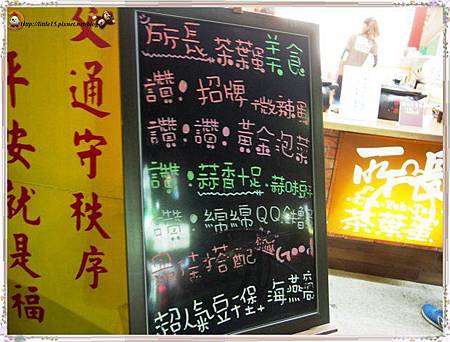 http://little15.pixnet.net/blog
交通守秩序
平安就是福
所長茶葉蛋美食
讚!招牌微辣蛋
讚!讚!黃金泡菜
讚!蒜香十足蒜味豆干
讚!綿綿QQ
搭配 Good
超人氣豆干堡+海燕窩
所長
茶葉蛋